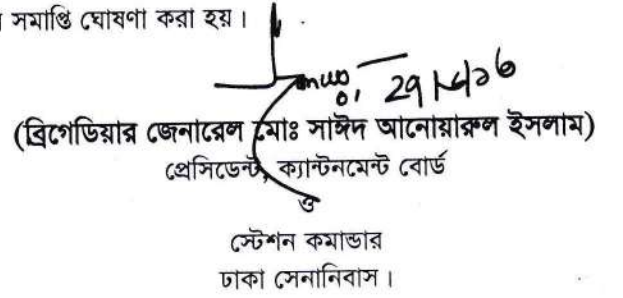 সমাপ্তি ঘোষণা করা হয়।
(ব্রিগেডিয়ার জেনারেল মোঃ সাঈদ আনোয়ারুল ইসলাম)
প্রেসিডেন্ট, ক্যান্টনমেন্ট বোর্ড
ও
স্টেশন কমান্ডার
ঢাকা সেনানিবাস।